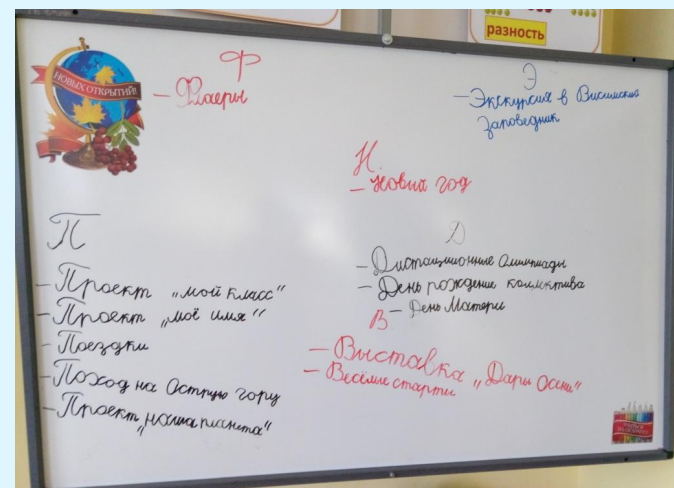 разность
НОВЫХ ОТКРЫТИЙ!
Ф
– Флаеры
Э
– Экскурсия в Висимский
заповедник
Н.
– Новый год
П
– Проект „мой класс“
– Проект „моё имя“
– Поездки
– Поход на Острую гору
– Проект
„наша планета“
Д
– Дистанционные олимпиады
– День рождение коллектива
– День Матери
В.
– Выставка „Дары Осени“
– Весёлые старты